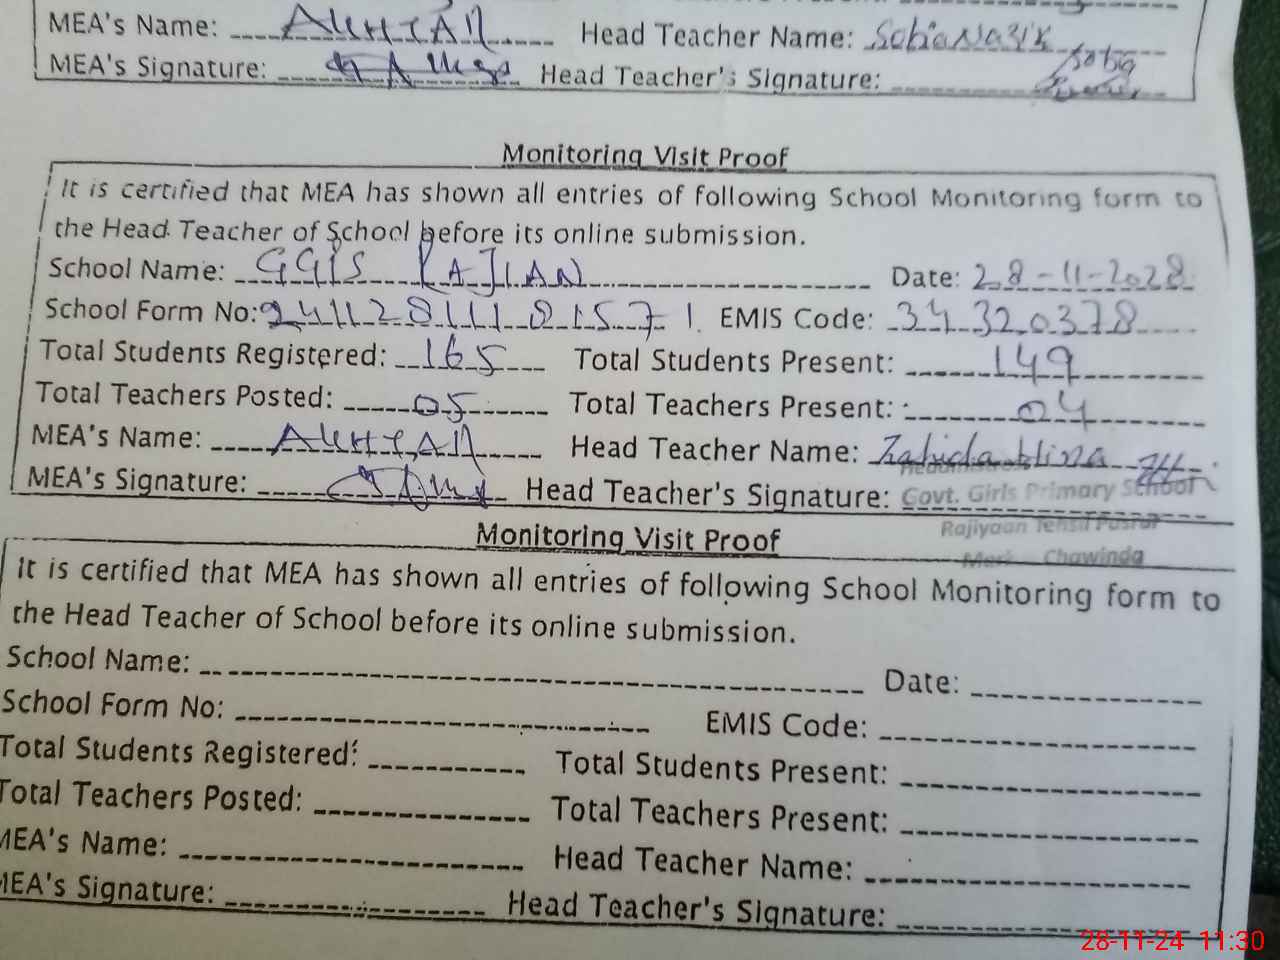 MEA's Name: AKHTAR Head Teacher Name: Sobia Nazir
MEA's Signature: Head Teacher's Signature: Sobia
Monitoring Visit Proof
It is certified that MEA has shown all entries of following School Monitoring form to
the Head Teacher of School before its online submission.
School Name: Date: 28-11-2028
School Form No: EMIS Code: 34320378
Total Students Registered: 165 Total Students Present: 149
Total Teachers Posted: 05 Total Teachers Present: 04
MEA's Name: AKHTAR Head Teacher Name: Zahida Hina
Headmistress
MEA's Signature: Head Teacher's Signature: Govt. Girls Primary School
Rajiyaan Tehsil Pasrur
Chawinda
Monitoring Visit Proof
It is certified that MEA has shown all entries of following School Monitoring form to
the Head Teacher of School before its online submission.
School Name: Date:
School Form No: EMIS Code:
Total Students Registered: Total Students Present:
Total Teachers Posted: Total Teachers Present:
MEA's Name: Head Teacher Name:
MEA's Signature: Head Teacher's Signature:
28-11-24 11:30